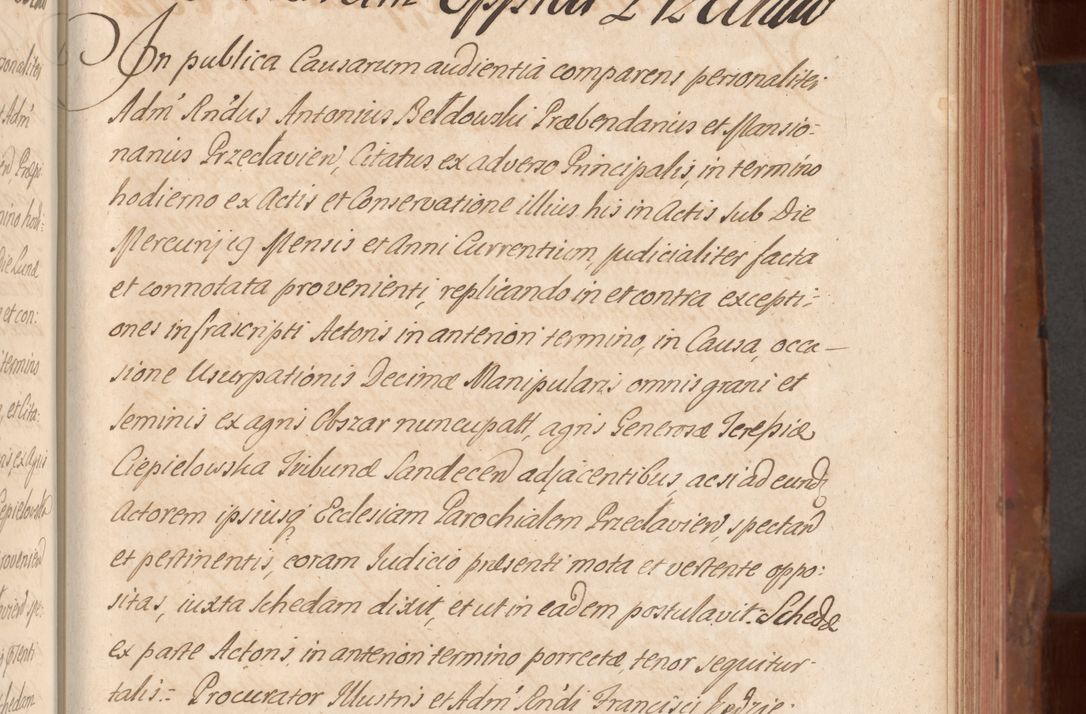 oppidi Przeclaw
In publica Causarum audientia comparens personaliter
Adm' Rndus Antonius Bełdowski Præbendarius et Mansio=
narius Przeclavien, Citatus ex adverso Principalis, in termino
hodierno ex Actis et Conservatione illius his in Actis sub Die
Mercurij 19 Mensis et Anni Currentium, judicialiter facta
et connotata provenienti, replicando in et contra excepti=
ones infrascripti Actoris in anteriori termino, in Causa, occa=
sione Usurpationis Decimæ Manipularis omnis grani et
seminis ex agris Obszar nuncupatt, agris Generosæ Teressiæ
Ciepielowska Tribunæ Sandecen adjacentibus, ac si ad eund
Actorem ipsiusq Ecclesiam Parochialem Przeclavien, spectand
et pertinentis, coram Judicio præsenti mota et vertente oppo:
sitas, iuxta schedam dixit, et ut in eadem postulavit. Schedæ
ex parte Actoris, in anteriori termino porrectæ, tenor sequitur
talis= Procurator Illustris et Adm' Rndi Francisci
sonaliter
Adm'
mino hodi:
Die Lunæ
et con:
termino
et Cita:
ex Agris
Ciepielowska
provenien